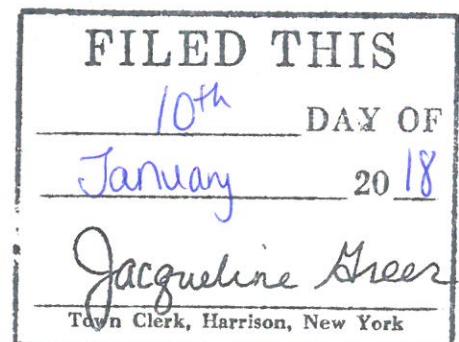 FILED THIS
10th DAY OF
January 20 18
Jacqueline Greer
Town Clerk, Harrison, New York